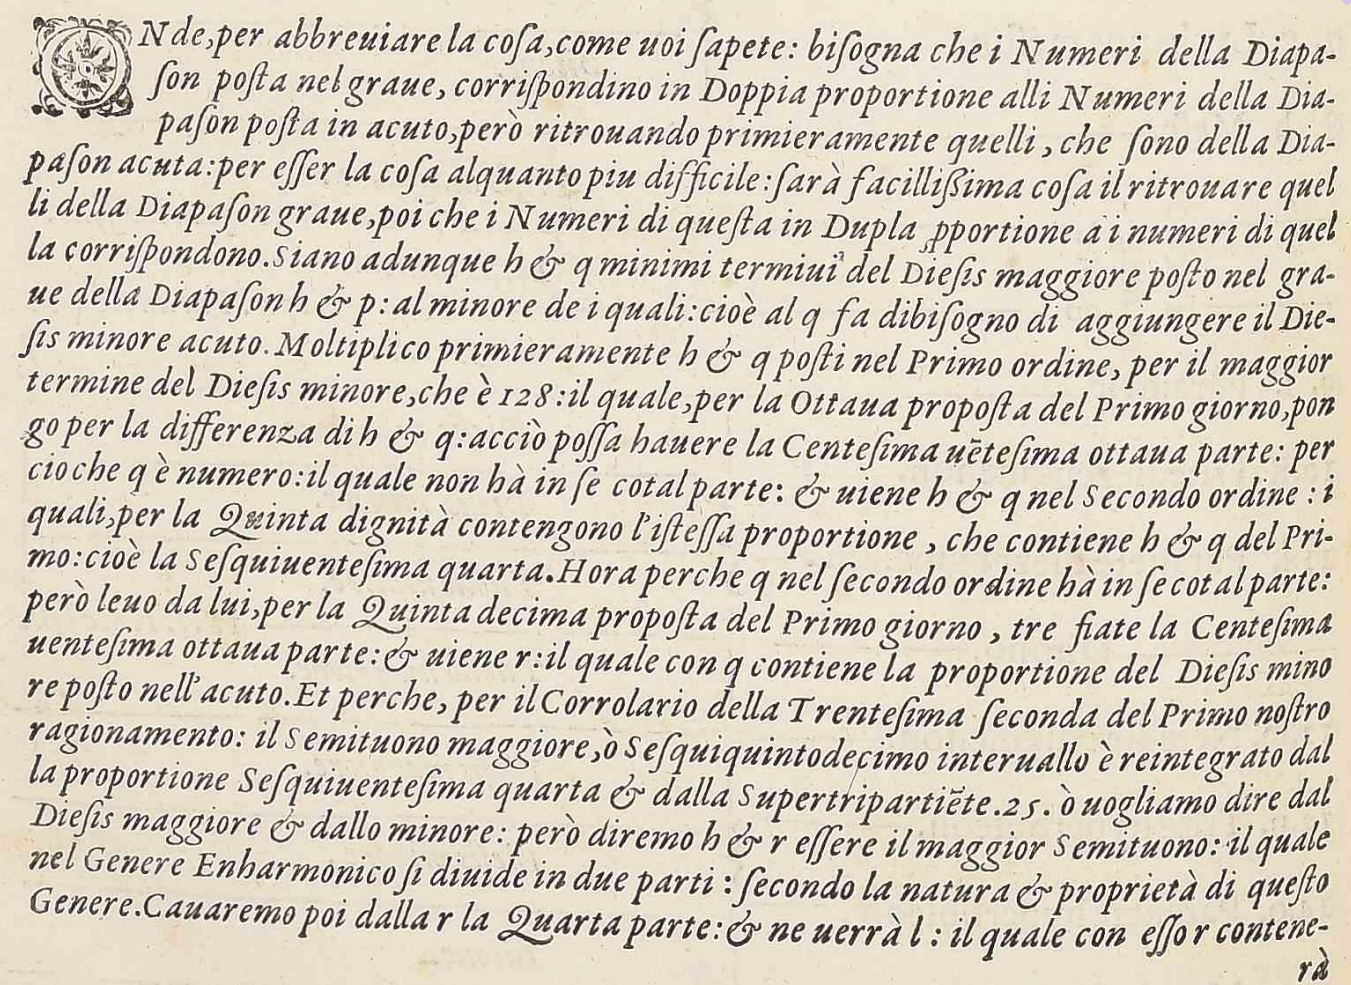 ONde, per abbreuiare la coſa, come uoi ſapete: biſogna che i Numeri della Diapa-
ſon poſta nel graue, corriſpondino in Doppia proportione alli Numeri della Dia-
paſon poſta in acuto, però ritrouando primieramente quelli, che ſono della Dia-
paſon acuta: per eſſer la coſa alquanto piu difficile: ſarà facillißima coſa il ritrouare quel
li della Diapaſon graue, poi che i Numeri di queſta in Dupla ꝓportione à i numeri di quel
la corriſpondono. Siano adunque h & q minimi termiui del Dieſis maggiore poſto nel gra-
ue della Diapaſon h & p: al minore de i quali: cioè al q fa dibiſogno di aggiungere il Die-
ſis minore acuto. Moltiplico primieramente h & q poſti nel Primo ordine, per il maggior
termine del Dieſis minore, che è 128: il quale, per la Ottaua propoſta del Primo giorno, pon
go per la differenza di h & q: acciò poſſa hauere la Centeſima uēteſima ottaua parte: per
cioche q è numero: il quale non hà in ſe cotal parte: & uiene h & q nel Secondo ordine: i
quali, per la Quinta dignità contengono l'iſteſſa proportione, che contiene h & q del Pri-
mo: cioè la Seſquiuenteſima quarta. Hora perche q nel ſecondo ordine hà in ſe cotal parte:
però leuo da lui, per la Quinta decima propoſta del Primo giorno, tre fiate la Centeſima
uenteſima ottaua parte: & uiene r: il quale con q contiene la proportione del Dieſis mino
re poſto nell'acuto. Et perche, per il Corrolario della Trenteſima ſeconda del Primo noſtro
ragionamento: il Semituono maggiore, ò Seſquiquintodecimo interuallo è reintegrato dal
la proportione Seſquiuenteſima quarta & dalla Supertripartiēte. 25. ò uogliamo dire dal
Dieſis maggiore & dallo minore: però diremo h & r eſſere il maggior Semituono: il quale
nel Genere Enharmonico ſi diuide in due parti: ſecondo la natura & proprietà di queſto
Genere. Cauaremo poi dalla r la Quarta parte: & ne uerrà l: il quale con eſſo r contene-
rà